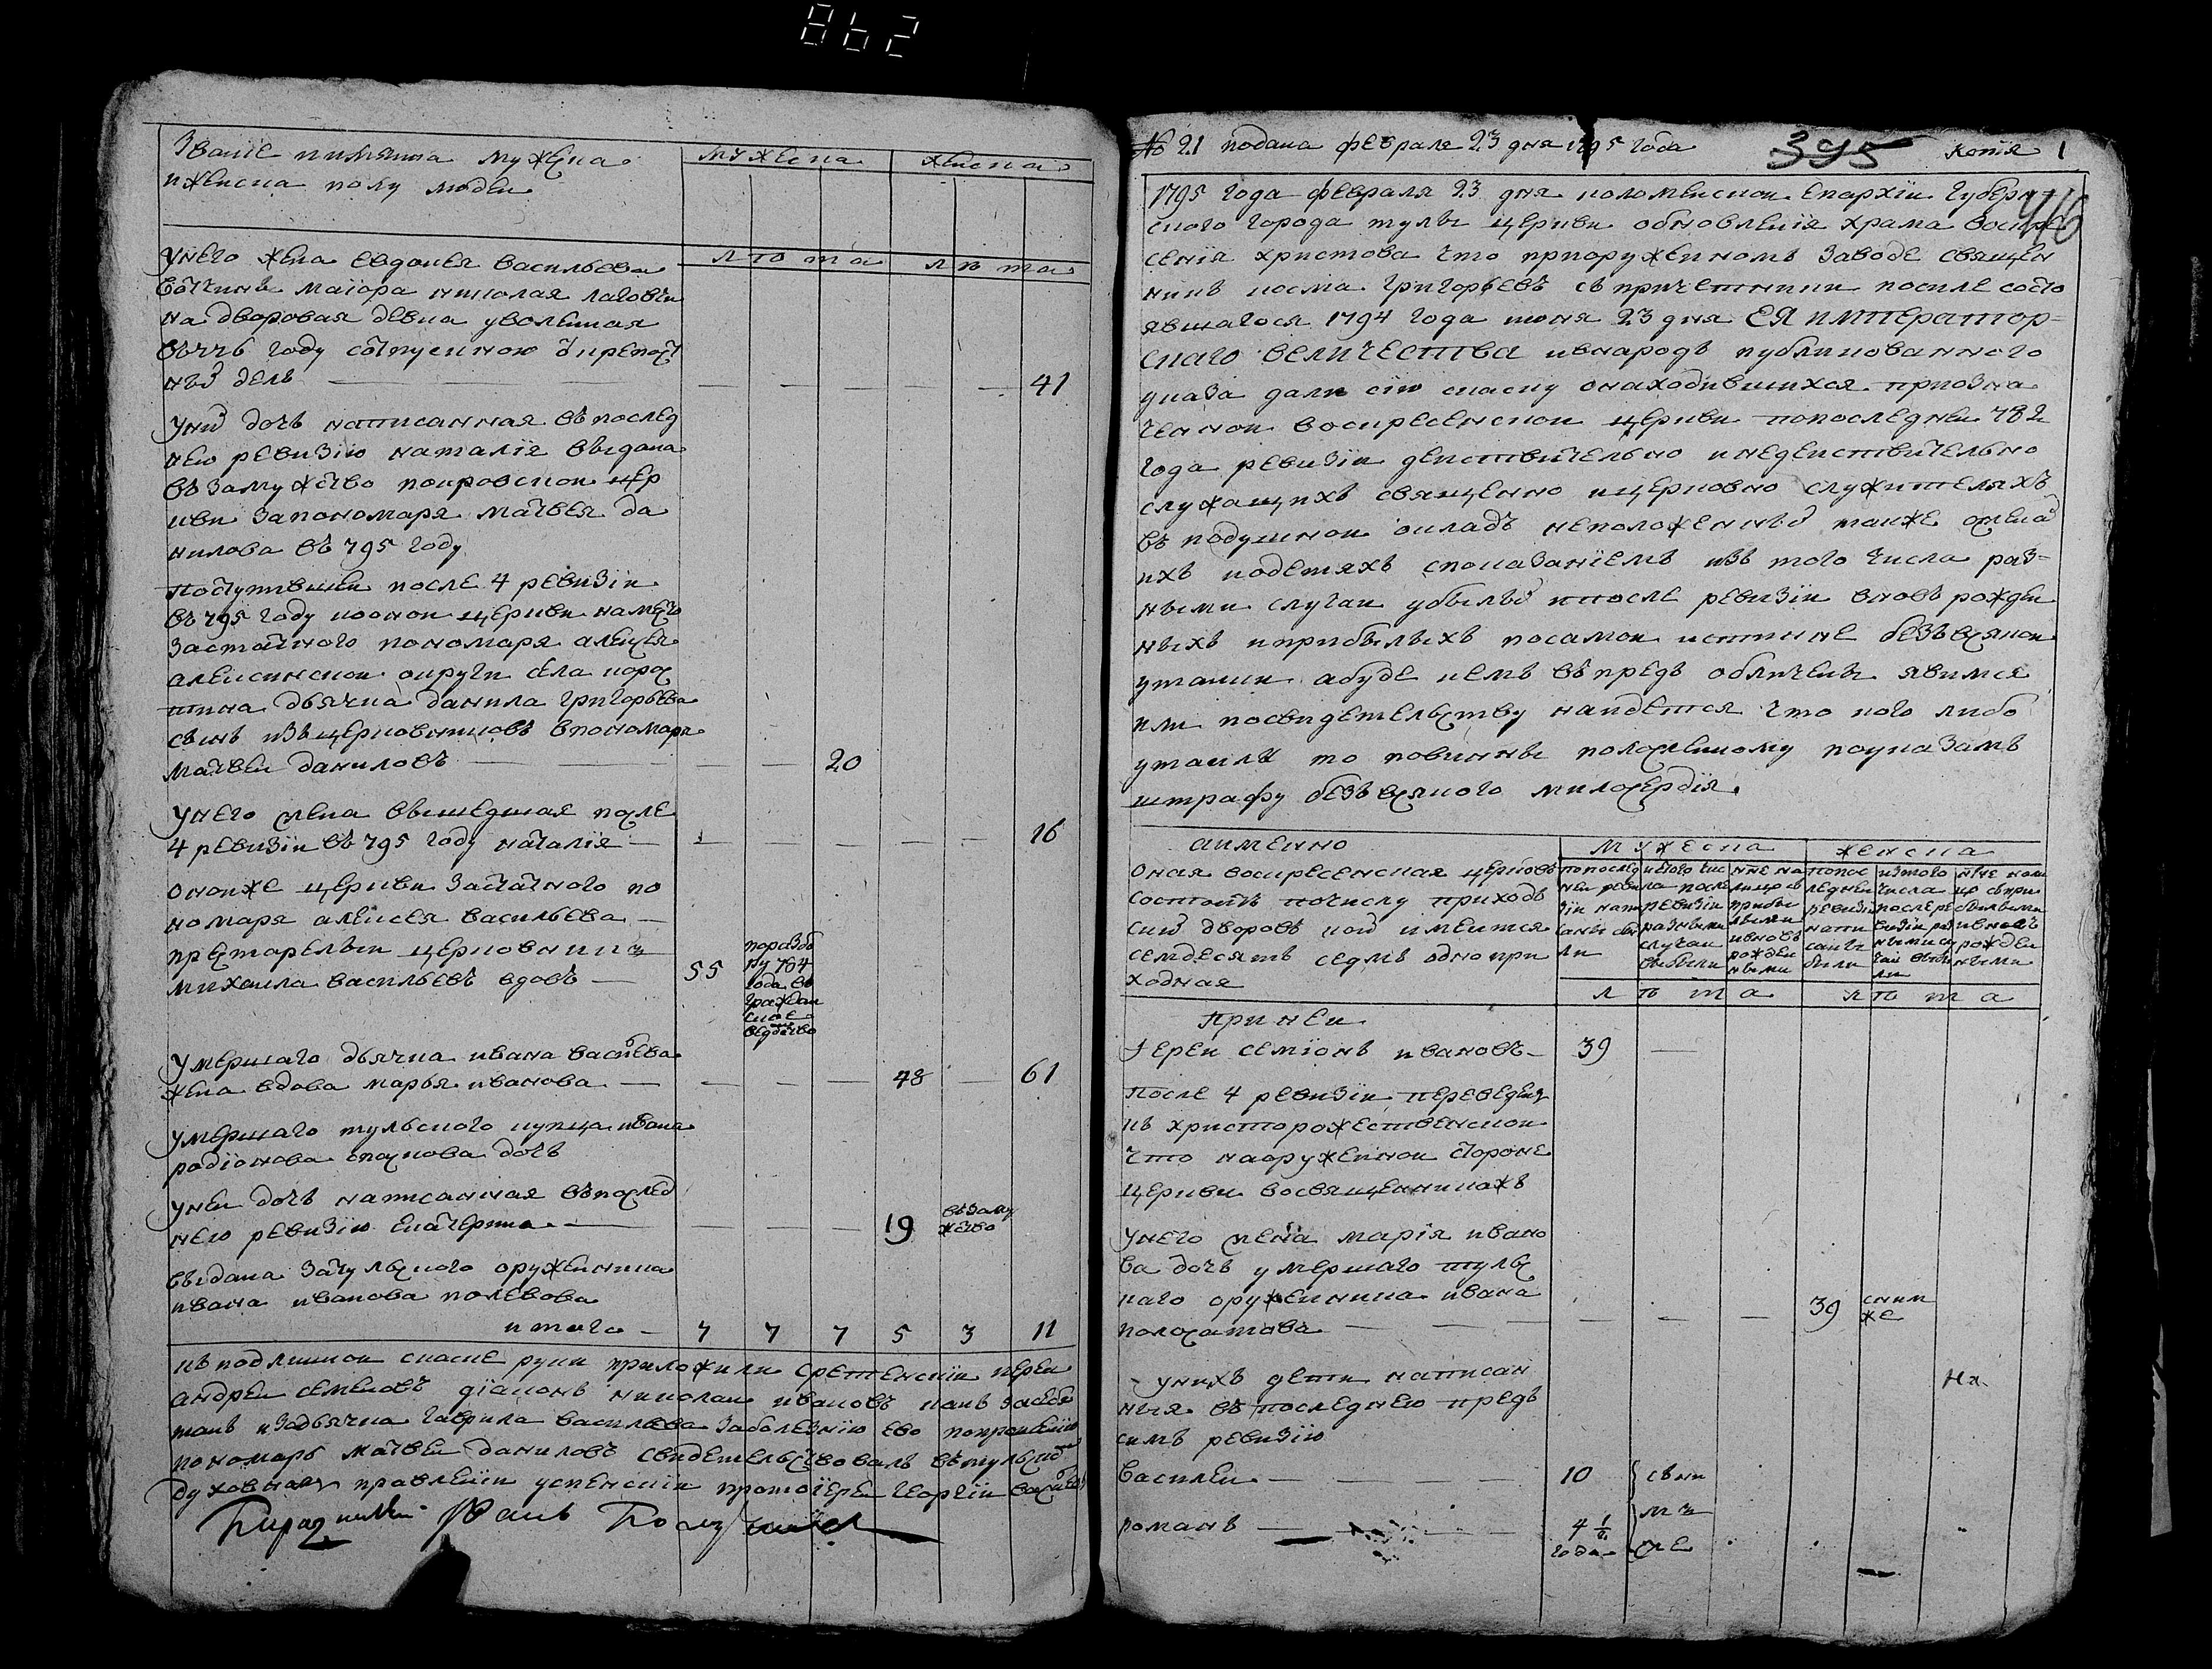 862
Званïе иимянна мужеска
иженска полу людеи
мужеска
женска
лѣта
лѣта
унего жена евдокея васильева
вотчины маïора николая
на дворовая девка уволенная
году отпускною
дѣлъ
41
уних дочь написанная въ послед
нею ревизïю наталïя выдана
въ замужство покровскои цер
кви запономаря матвея да
нилова въ 795 году
поступившеи после 4 ревизïи
въ 795 году коонои церкви намѣсто
заштатного пономаря алексея
алексинскои округи села корос
тина дьячка данила григорьева
сынъ изъ церковниковъ впономари
матвеи даниловъ
20
унего жена вышедшая после
4 ревизïи въ 795 году наталïя
16
оноиже церкви заштатного по
номаря алексея васильева
престарелыи церковникъ
михаила васильевъ вдовъ
55
поразбо
ру 784
года въ
граждан
ское
ведомство
умершаго дьячка ивана васильева
жена вдова марья иванова
48
61
умершаго тульского купца ивана
родïонова дочь
унеи дочь написанная въ послед
нею ревизïю екатерина
19
въ заму
жство
выдана затульского оруженника
ивана иванова полевова
итого 7 7 7 5 3 11
къ подлиннои скаске руки приложили сретенскïи иереи
андреи семеновъ дïаконъ николаи ивановъ какъ засебя
такъ изадьячка гаврила васильева заболезнïю ево попрошенïю
пономарь матвеи даниловъ свидетельствовалъ втульском
духовном правленïи успенскïи протоïереи георгïи
№ 21 подана февраля 23 дня 1795 года
395
копïя 1
416
1795 года февраля 23 дня коломенскои епархïи губерн-
ского города тулы церкви обновленïя храма воскре
сенïя христова что приоружеиномъ заводе священ
никъ косма григорьевъ съ причетники после состо
явшагося 1794 года июня 23 дня ЕЯ император-
скаго величества ивнародъ публикованного
указа дали сïю скаску онаходившихся приозна
ченнои воскресенскои церкви попоследнеи 782
года ревизïи действительно инедействительно
служащихъ священно ицерковно служителяхъ
въ подушнои окладъ неположенных также оженах
ихъ идетяхъ споказанïемъ изъ того числа раз-
ными случаи убылых ипосле ревизïи вновь рожден
ныхъ иприбылыхъ посамои истинне безъ всякои
утаики абуде кемъ въпредь обличены явимся
или посвидетельству наидется что кого либо
утаили то повинны положенному поуказамъ
штрафу безъ всякого милосердïя.
аимеино
оная воскресенская церковь
состоитъ почислу приход
ских дворовъ коих имеится
семдесятъ седмь одно при
ходная
мужеска
женска
попослед
неи реви
зïи напи
саны бы
ли
изтого чис
ла после
ревизïи
разными
случаи
выбыли
нне на
лицо съ
прибы
лыми
ивновь
рожден
ными
попос
леднеи
ревизïи
напи
саны
были
изтого
числа
после ре
визïи раз
ными слу
чаи выбы
ли
нне нали
цо съ при
былыми
ивновь
рожден
ными
лѣта
лѣта
при неи
ïереи семïонъ ивановъ
39
после 4 ревизïи переведенъ
къ христорожественскои
что наоружейнои стороне
церкви восвященникахъ
унего жена марïя ивано
ва дочь умершаго туль
скаго оружеиника ивана
полосатова
39
сним
же
уних дети написан
ныя въ последнею предъ
симъ ревизïю
василеи
10
романъ
4 1/2
года
съ ни
мъ
же